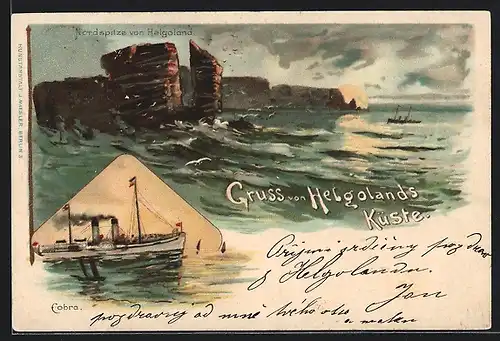 Nordspitze von Helgoland.
KUNSTANSTALT J. MIESLER, BERLIN S.
Gruss von Helgolands
Küste.
Přijmi srdečný pozdrav
z Helgolandu.
Jan
Cobra.
pozdravuj od mně tvého otce
a matku